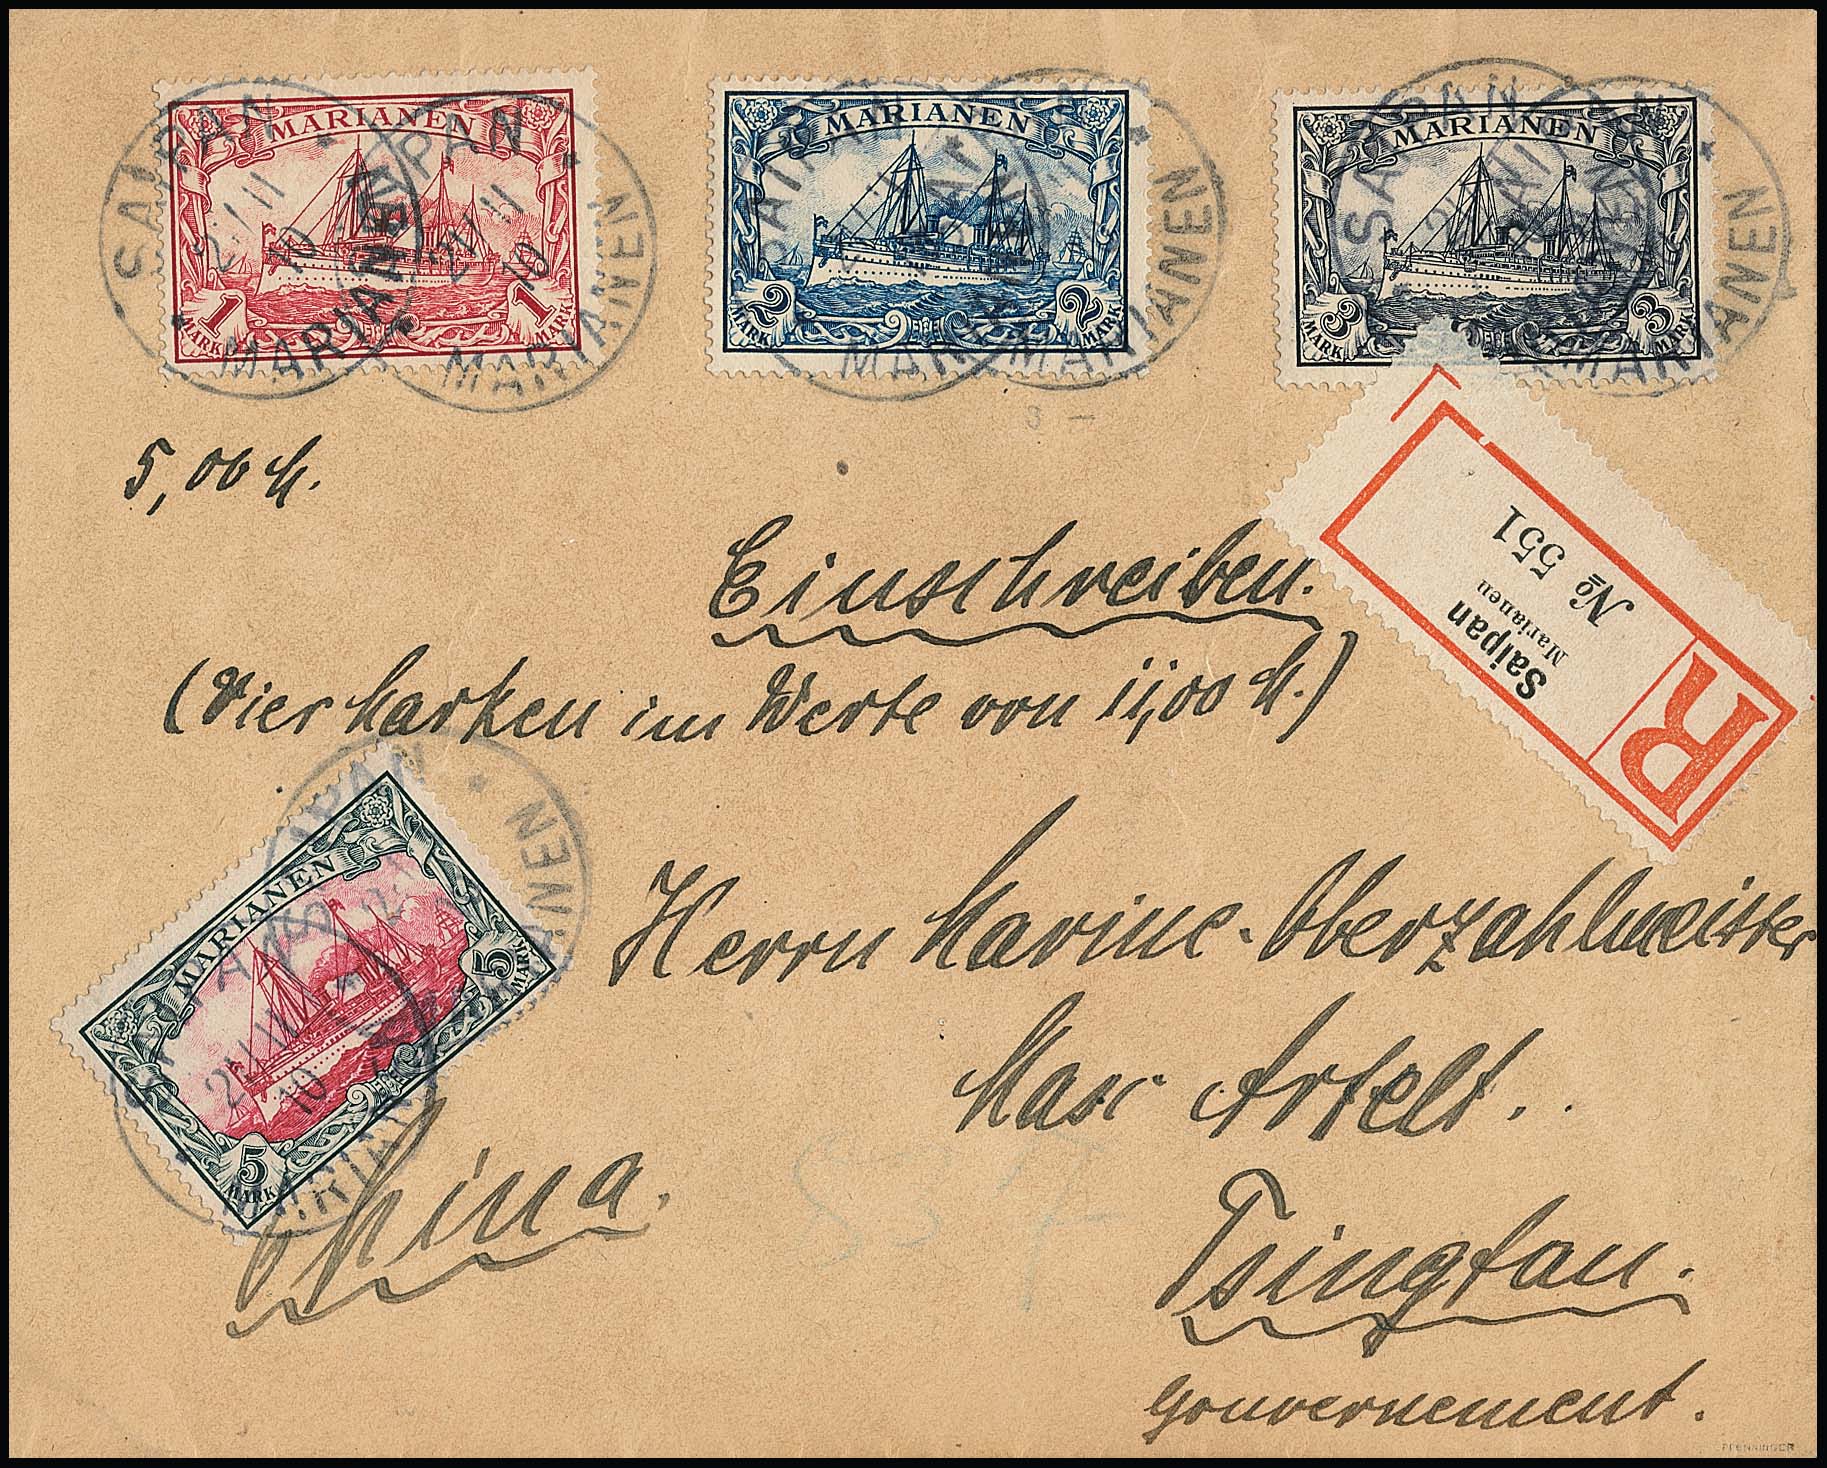 MARIANEN
1 MARK 1 MARK
SAIPAN
MARIANEN
SAIPAN
MARIANEN
MARIANEN
2 MARK 2 MARK
SAIPAN
MARIANEN
MARIANEN
MARIANEN
3 MARK 3 MARK
SAIPAN
MARIANEN
5,00 M.
Einschreiben.
(Vier Marken im Werte von 11,00 M.)
R
Saipan
Marianen
No 551
MARIANEN
5 MARK 5 MARK
SAIPAN
MARIANEN
Herrn Marine-Oberzahlmeister
Max Artelt.
China.
Tsingtau.
Gouvernement.
PFENNINGER